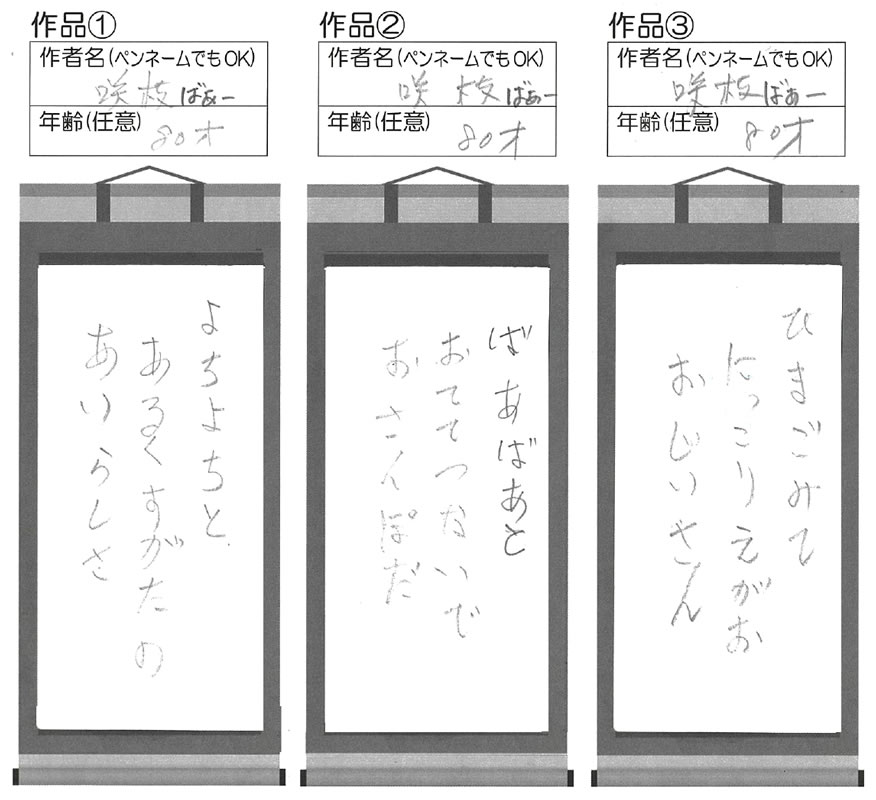 作品①
作者名(ペンネームでもOK)
咲枝ばぁー
年齢(任意)
80才
よちよちと
あるくすがたの
あいらしさ
作品②
作者名(ペンネームでもOK)
咲枝ばぁー
年齢(任意)
80才
ばあばあと
おててつないで
おさんぽだ
作品③
作者名(ペンネームでもOK)
咲枝ばぁー
年齢(任意)
80才
ひまごみて
にっこりえがお
おじいさん